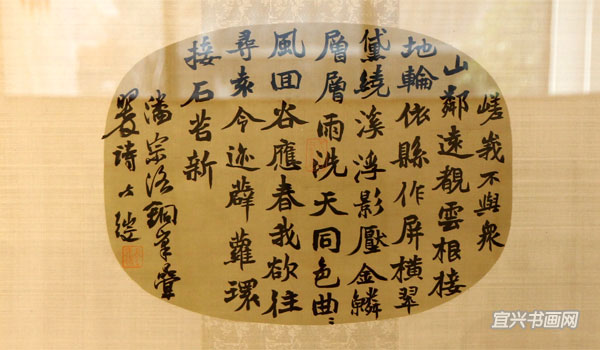 嵯峩不與衆
山鄰遠覩雲根接
地輪依縣作屏橫翠
黛繞溪浮影壓金鱗
層層雨洗天同色曲〻
風回谷應春我欲往
尋袁令迹薜蘿環
接石苔新
潘宗洛銅峯疊
翠詩
宜兴书画网